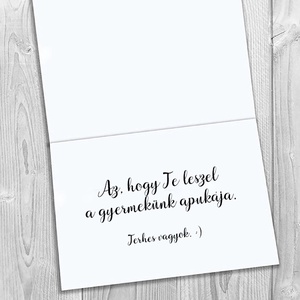 Az, hogy Te leszel
a gyermekünk apukája.
Terhes vagyok. :)